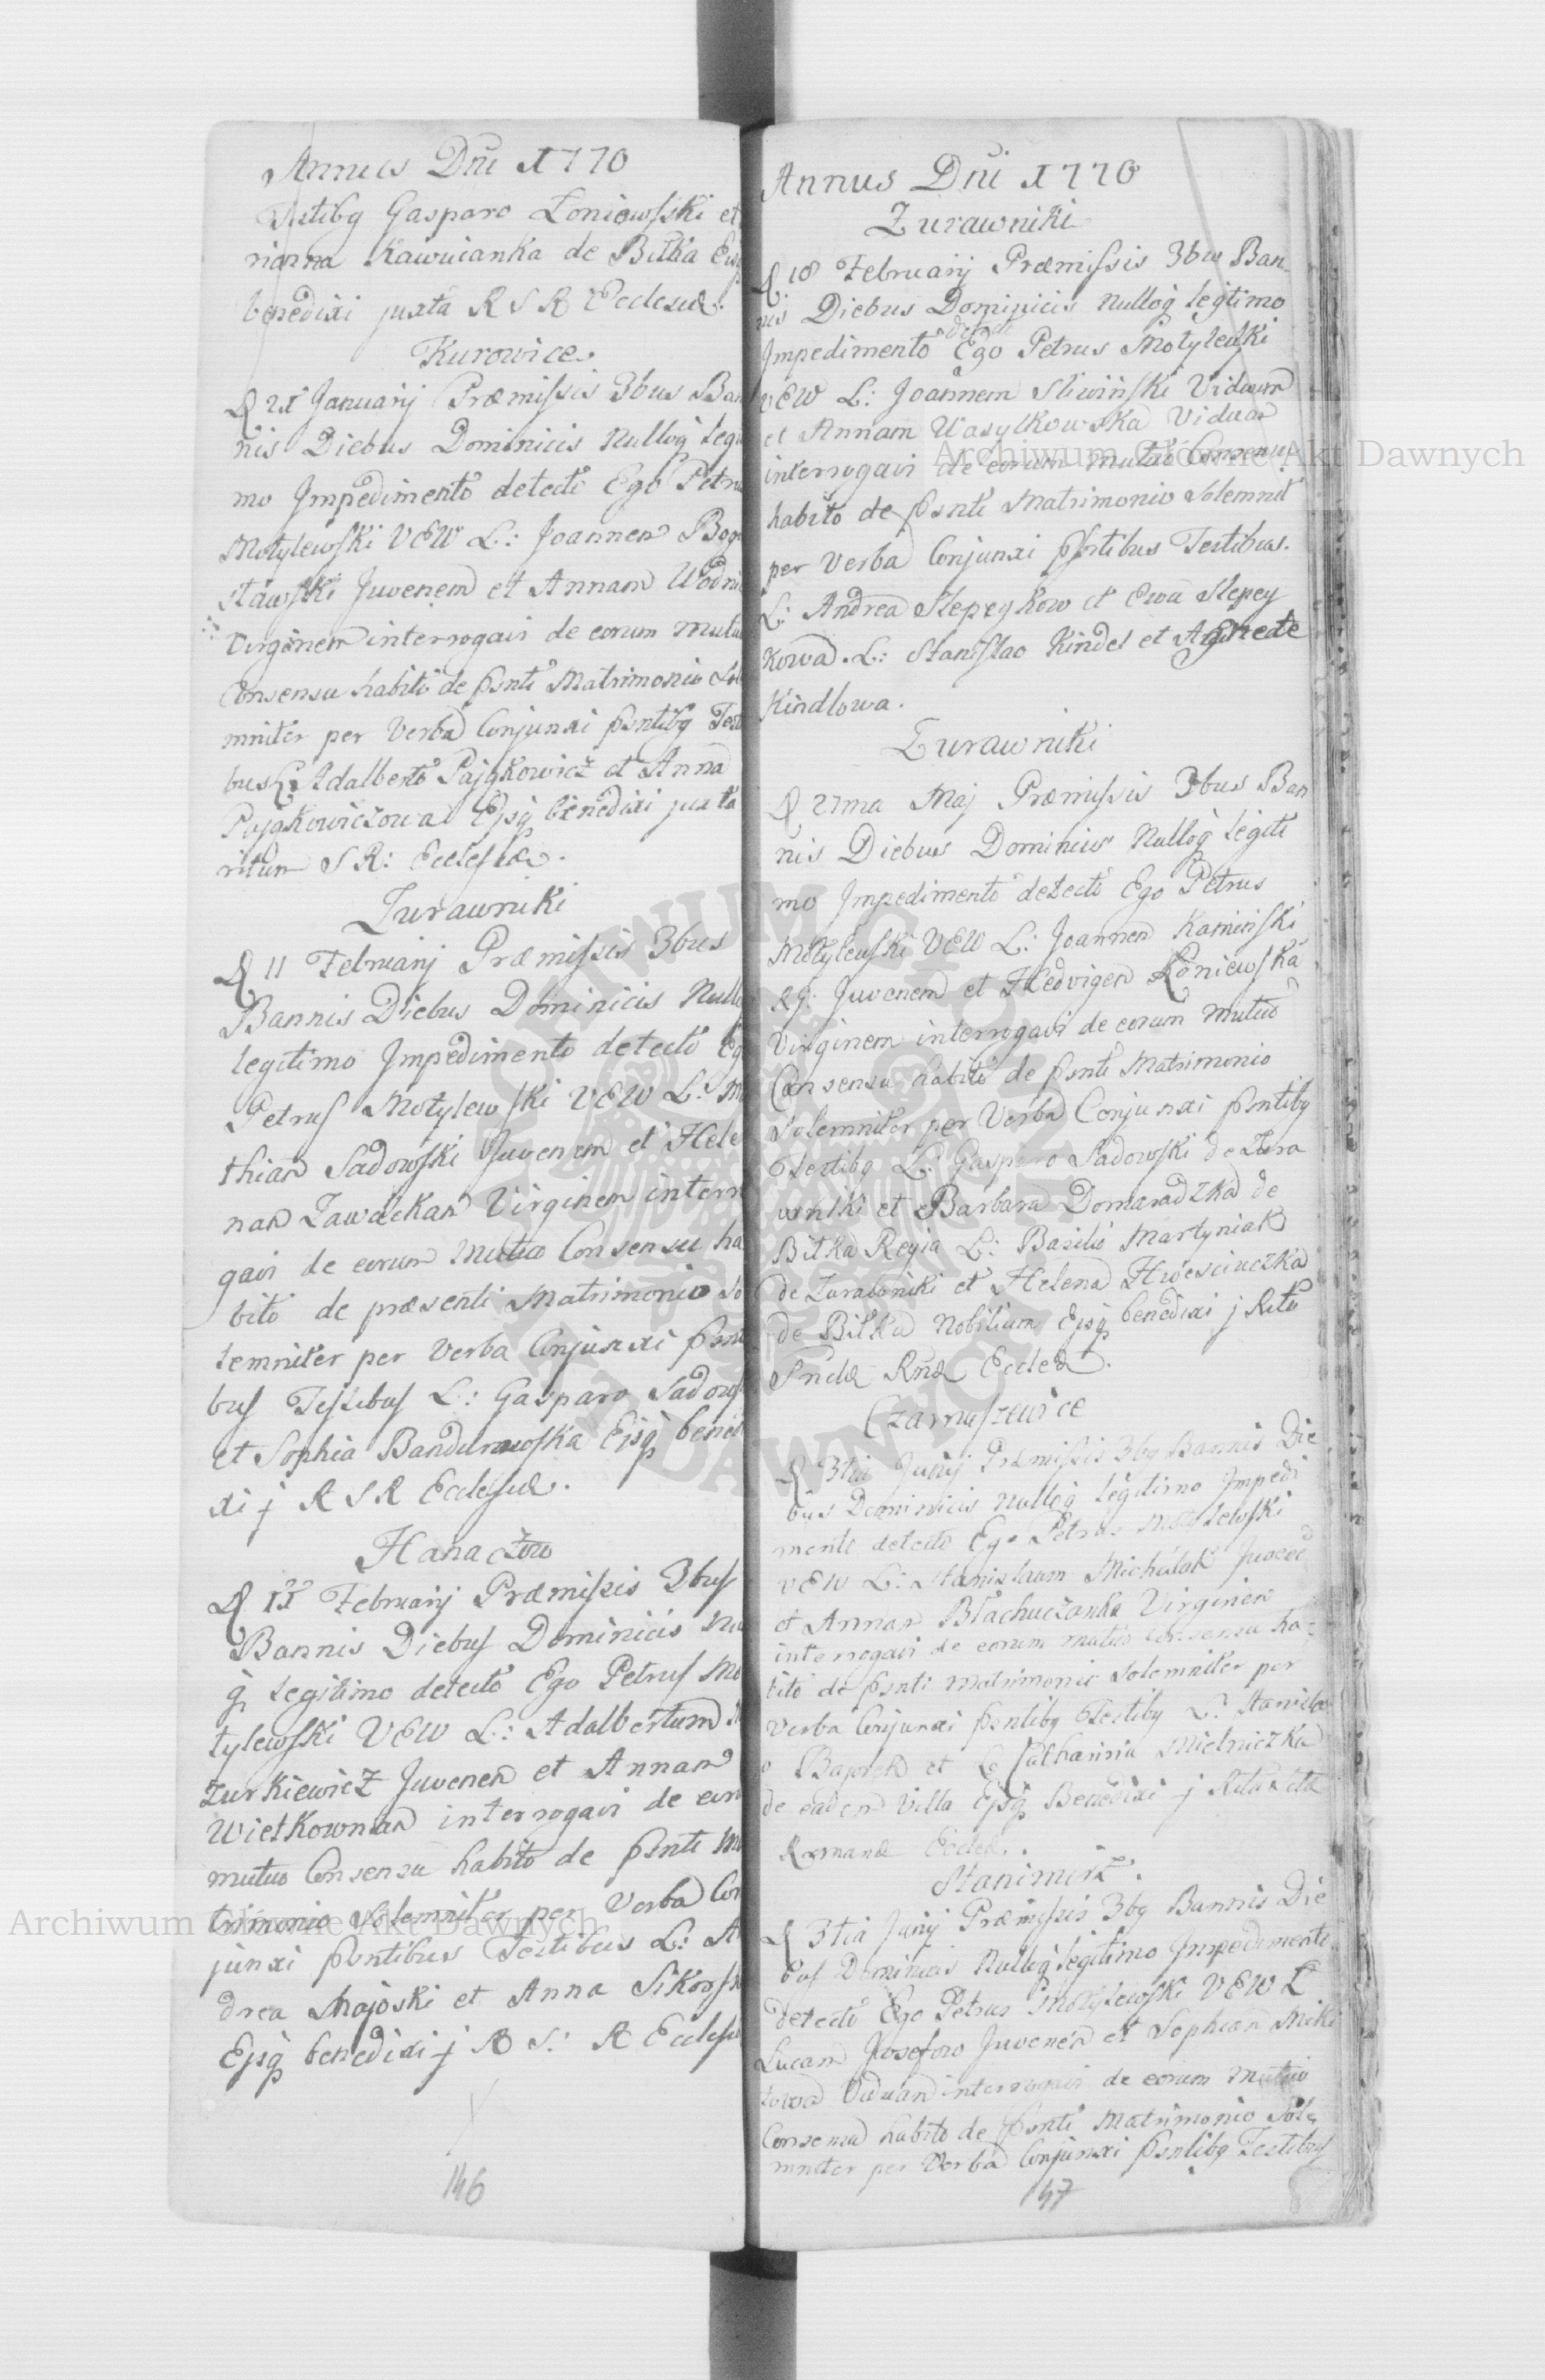 Annus Dni 1770
Testibq Gasparo Łoniewski et
rianna Kawucianka de Biłka Eisq
benedixi juxta R S R Ecclesiæ.
Kurowice.
D 21 Januarij Præmissis 3bus Ban
nis Diebus Dominicis Nulloq legi
mo Jmpedimento detecto Ego Petrus
Motylewski VEW L: Joannem Bogu
sławski Juvenem et Annam Wodni
Virginem interrogavi de eorum mutu
Consensu habito de psnti Matrimonio Sol
mniter per Verba Conjunxi psntibq Testi
bus L: Adalberto Pajgkowicz et Anna
Pajgkowiczowa Ejsq benedixi juxta
ritum S R: Ecclesiæ.
Zurawniki
D 11 Februarij Præmissis 3bus
Bannis Diebus Dominicis Nullo
legitimo Jmpedimento detecto Eg
Petrus Motylewski VEW L: M
thiam Sadowski Juvenem et Hele
nam Zawackam Virginem interr
gavi de eorum mutuo Consensu ha
bito de præsenti Matrimonio So
lemniter per Verba Conjunxi psnti
bus Testibus L: Gasparo Sadows
et Sophia Bandurowska Ejsq bened
xi j R S R Ecclesiæ.
Hanaczow
D Februarij Præmissis 3bus
Bannis Diebus Dominicis Nu
q legitimo detecto Ego Petrus Mo
tylewski VEW L: Adalbertum
Zurkiewicz Juvenem et Annam
Wietkownam interrogavi de eor
mutuo Consensu habito de psnti Ma
trimonio Solemniter per Verba Con
junxi psntibus Testibus L: A
drea Majoski et Anna Sikorsk
Ejsq benedixi j R S: R Ecclesiæ
146
Annus Dni 1770
Zurawniki
D 18 Februarij Præmissis 3bus Ban
nis Diebus Dominicis Nulloq legitimo
detecto
Jmpedimento Ego Petrus Motylewski
VEW L: Joannem Sliwinski Viduum
et Annam Wasylkowska Viduam
interrogavi de eorum mutuo Consensu
habito de psnti Matrimonio Solemnit
per Verba Conjunxi psntibus Testibus.
L: Andrea Slepeykow et Ewa Slepey
kowa. L: Stanislao Kindel et Agnete
Kindlowa.
Zurawniki
D 27ma Maj Præmissis 3bus Ban
nis Diebus Dominicis Nulloq legiti
mo Jmpedimento detecto Ego Petrus
Motylewski VEW L: Joannem Kaminski
Juvenem et Hedvigem Łoniewska
Virginem interrogavi de eorum mutuo
Consensu habito de psnti Matrimonio
Solemniter per Verba Conjunxi psntibq
Testibq L: Gasparo Sadowski de Zura
wniki et Barbara Domaradzka de
Biłka Regia L: Basilio Martyniak
de Zurawniki et Helena Hwesciuczka
de Biłka Nobilium Ejsq benedixi j Ritu
Snctæ Rnæ Ecclæ.
Czarnuszewice
D 3tia Junij Præmissis 3bq Bannis Die
bus Dominicis Nulloq legitimo Jmpedi
mento detecto Ego Petrus Motylewski
VEW L: Stanislaum Michalak Juvene
et Annam Błachuczanka Virginem
interrogavi de eorum mutuo consensu ha=
bito de psnti Matrimonio Solemniter per
Verba Conjunxi psntibq Testibq L: Stanisla
o Bajorek et L Catharina Mielniczka
de eadem Villa Ejsq Benedixi j Ritu Sctæ
Romanæ Ecclæ.
Stanimirz.
D 3tia Junij Præmissis 3bq Bannis Die
bus Dominicis Nulloq legitimo Jmpedimento
detecto Ego Petrus Motylewski VEW L
Lucam Josefow Juvenem et Sophiam Miki
towa Viduam interrogavi de eorum mutuo
Consensu habito de psnti Matrimonio Sole
mniter per Verba Conjunxi psntibq Testibus
47
Archiwum Główne Akt Dawnych
Archiwum Główne Akt Dawnych
ARCHIWUM GŁÓWNE AKT DAWNYCH